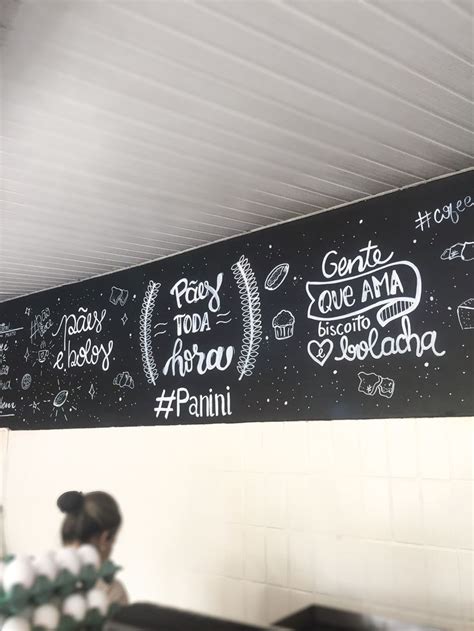 pães
e bolos
Pães
TODA
hora
#Panini
Gente
QUE AMA
biscoito
e bolacha